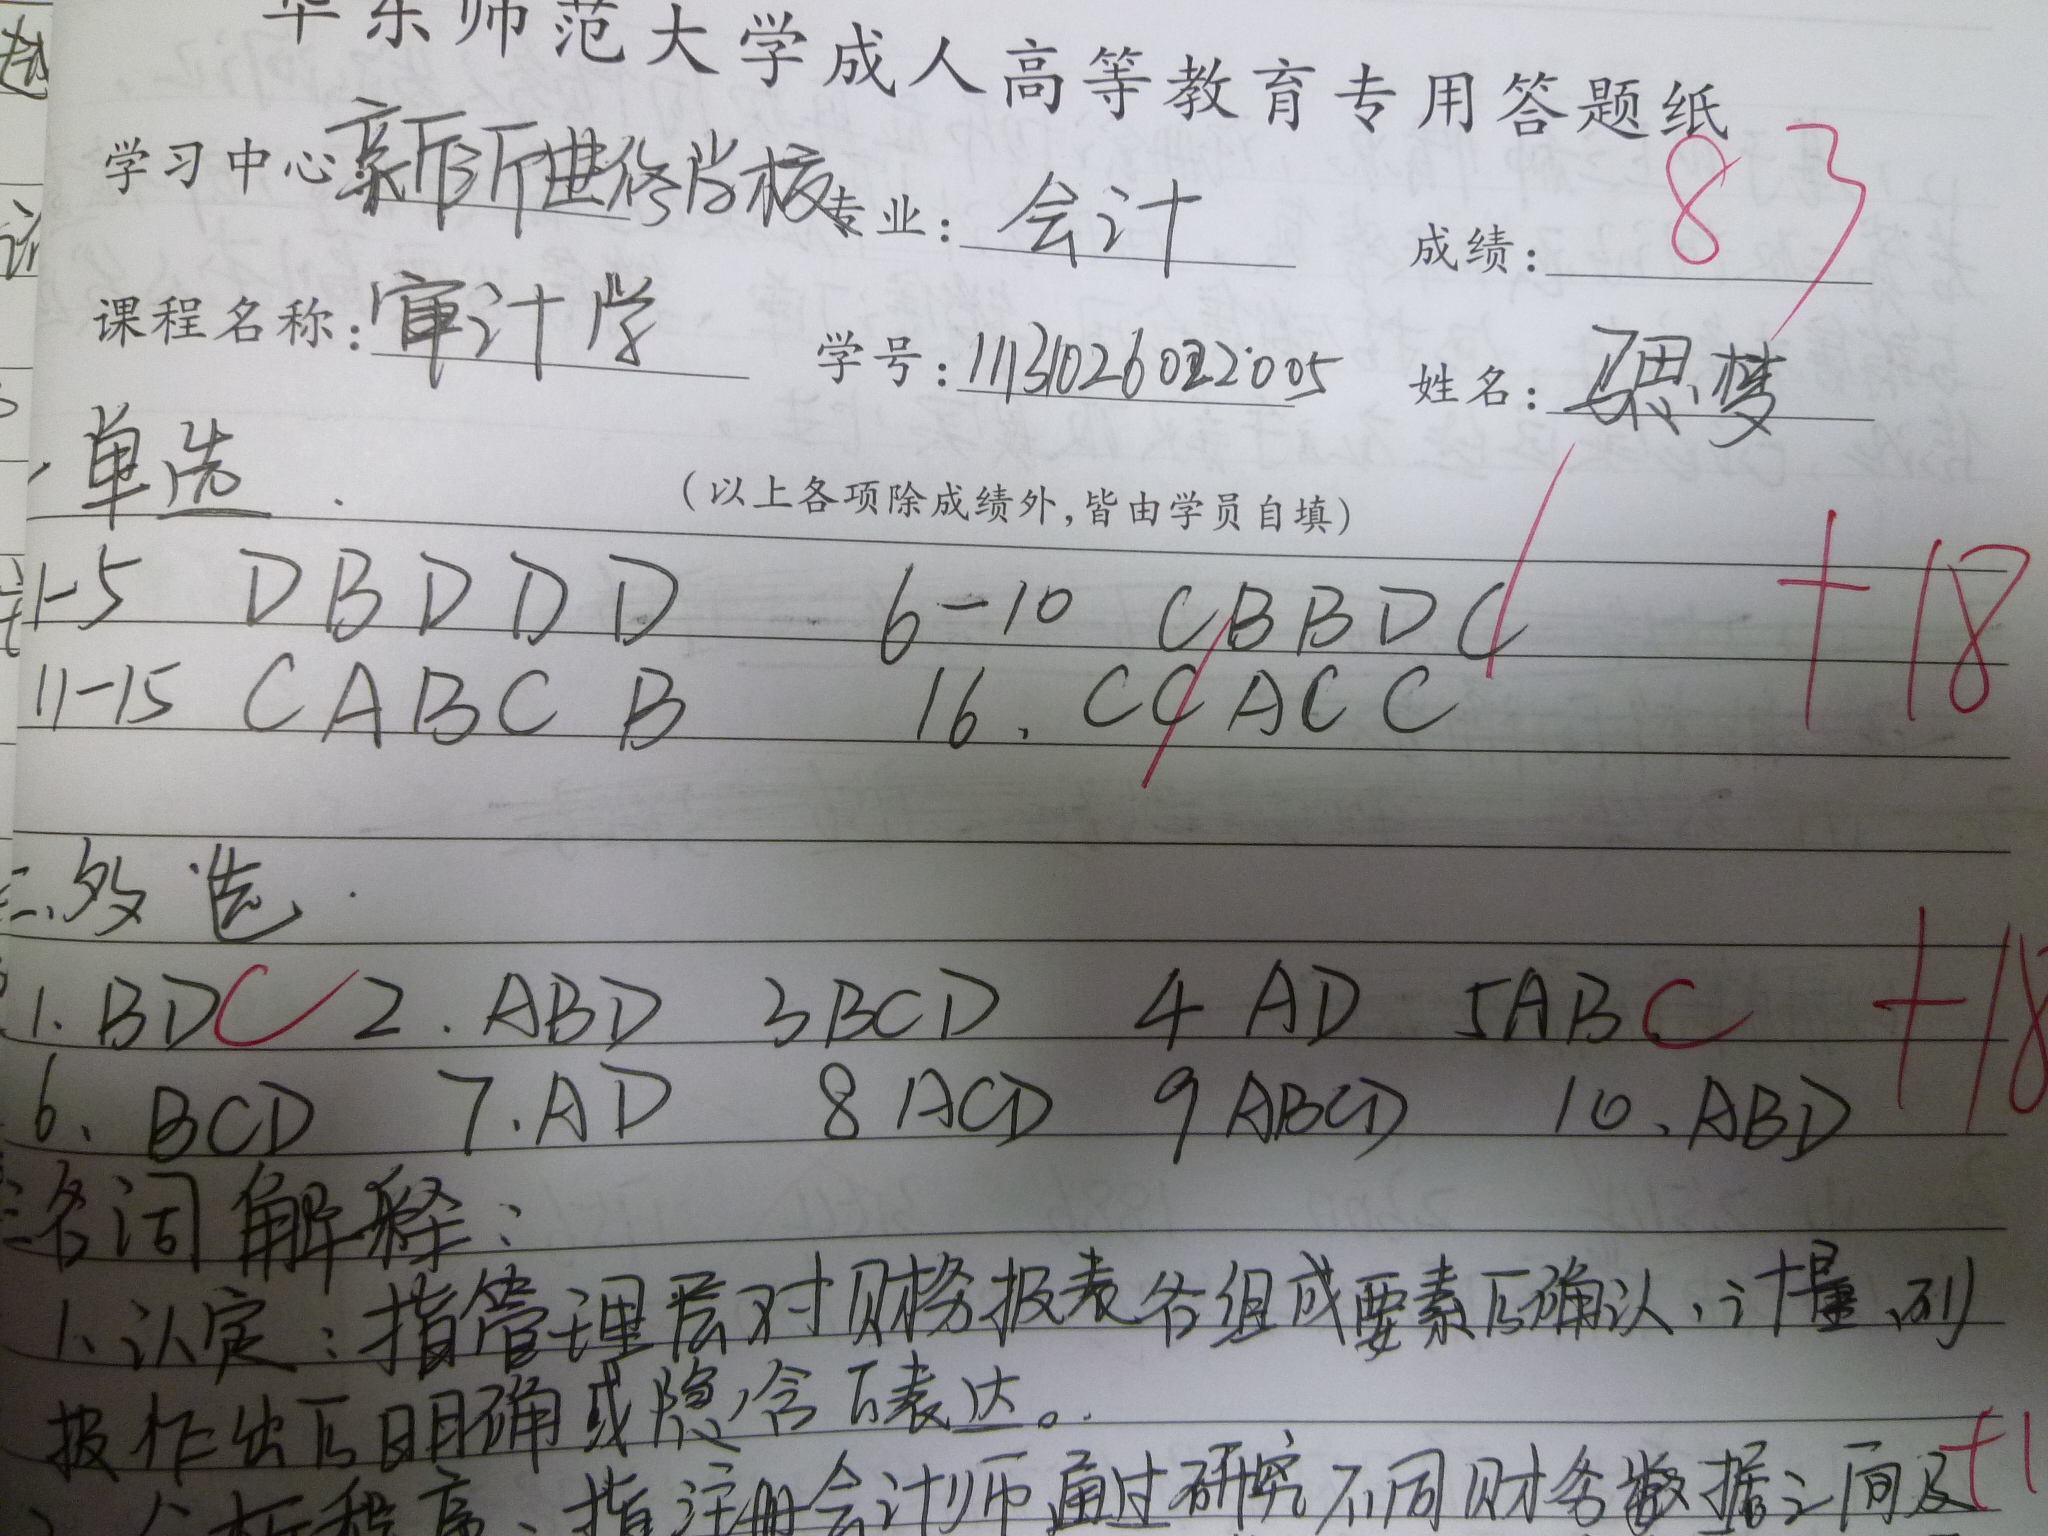 华东师范大学成人高等教育专用答题纸
学习中心 进修学校 专业: 会计 成绩: 83
课程名称: 审计学 学号: 姓名: 思梦
单选
(以上各项除成绩外,皆由学员自填)
1-5 D B D D D 6-10 C B B D C +18
11-15 C A B C B 16. C C A C C
二、多选
1. BDC 2. ABD 3 BCD 4 AD 5 ABC +18
6. BCD 7. AD 8 ACD 9 ABCD 10. ABD
三名词解释:
1、认定:指管理层对财务报表各组成要素的确认、计量、列
报作出的明确或隐含的表达。
2、分析程序:指注册会计师通过研究不同财务数据之间及